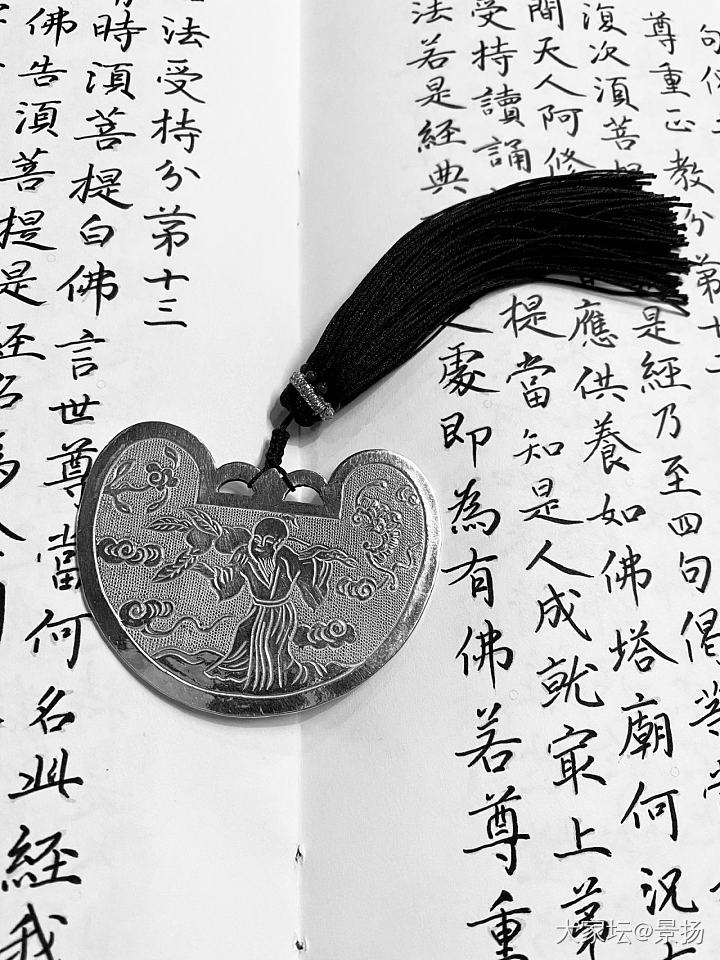 句
尊重正教分第十二
復次湏菩提 是經乃至四句偈等
間天人阿修 應供養如佛塔廟何況
受持讀誦 提當知是人成就㝡上第
法若是經典 處即為有佛若尊重
法受持分第十三
時湏菩提白佛言世尊當何名此經我
佛告湏菩提是經名為
大家坛@景扬